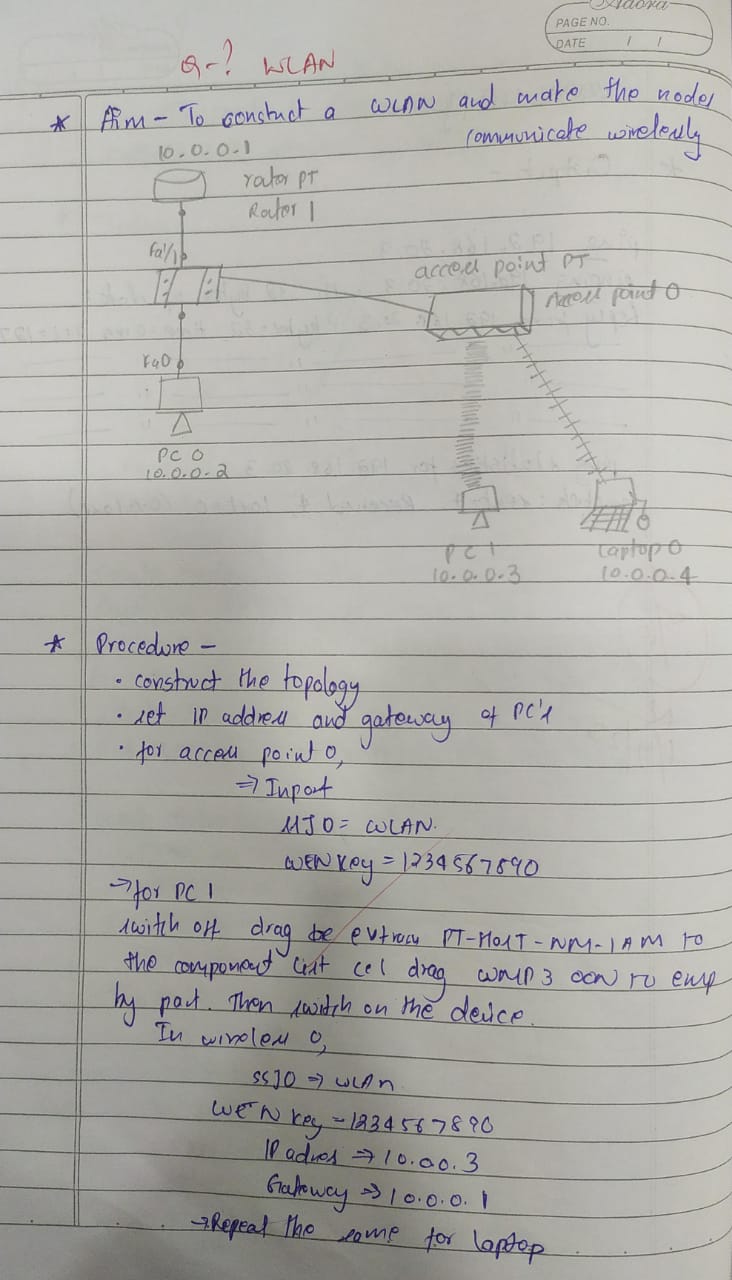 Adora
PAGE NO.
DATE / /
Q-? WLAN
* Aim - To constuct a WLAN and make the nodes
communicate wirelessly
10.0.0.1
rotor PT
Rotor 1
Fa1/1
access point PT
Access point 0
Fa0
PC 0
10.0.0.2
PC 1
10.0.0.3
Laptop 0
10.0.0.4
* Procedure -
• construct the topology
• set IP address and gateway of PC's
• for access point 0,
⇒ Inport
= WLAN.
WEN key = 1234567890
→ for PC 1
switch off drag be PT-HOST-NM-1AM to
the component list drag to emp
by port. Then switch on the device.
In wireless 0,
SSID ⇒ WLAN
WEN key - 1234567890
IP adres ⇒ 10.00.3
Gateway ⇒ 10.0.0.1
→ Repeat the same for laptop